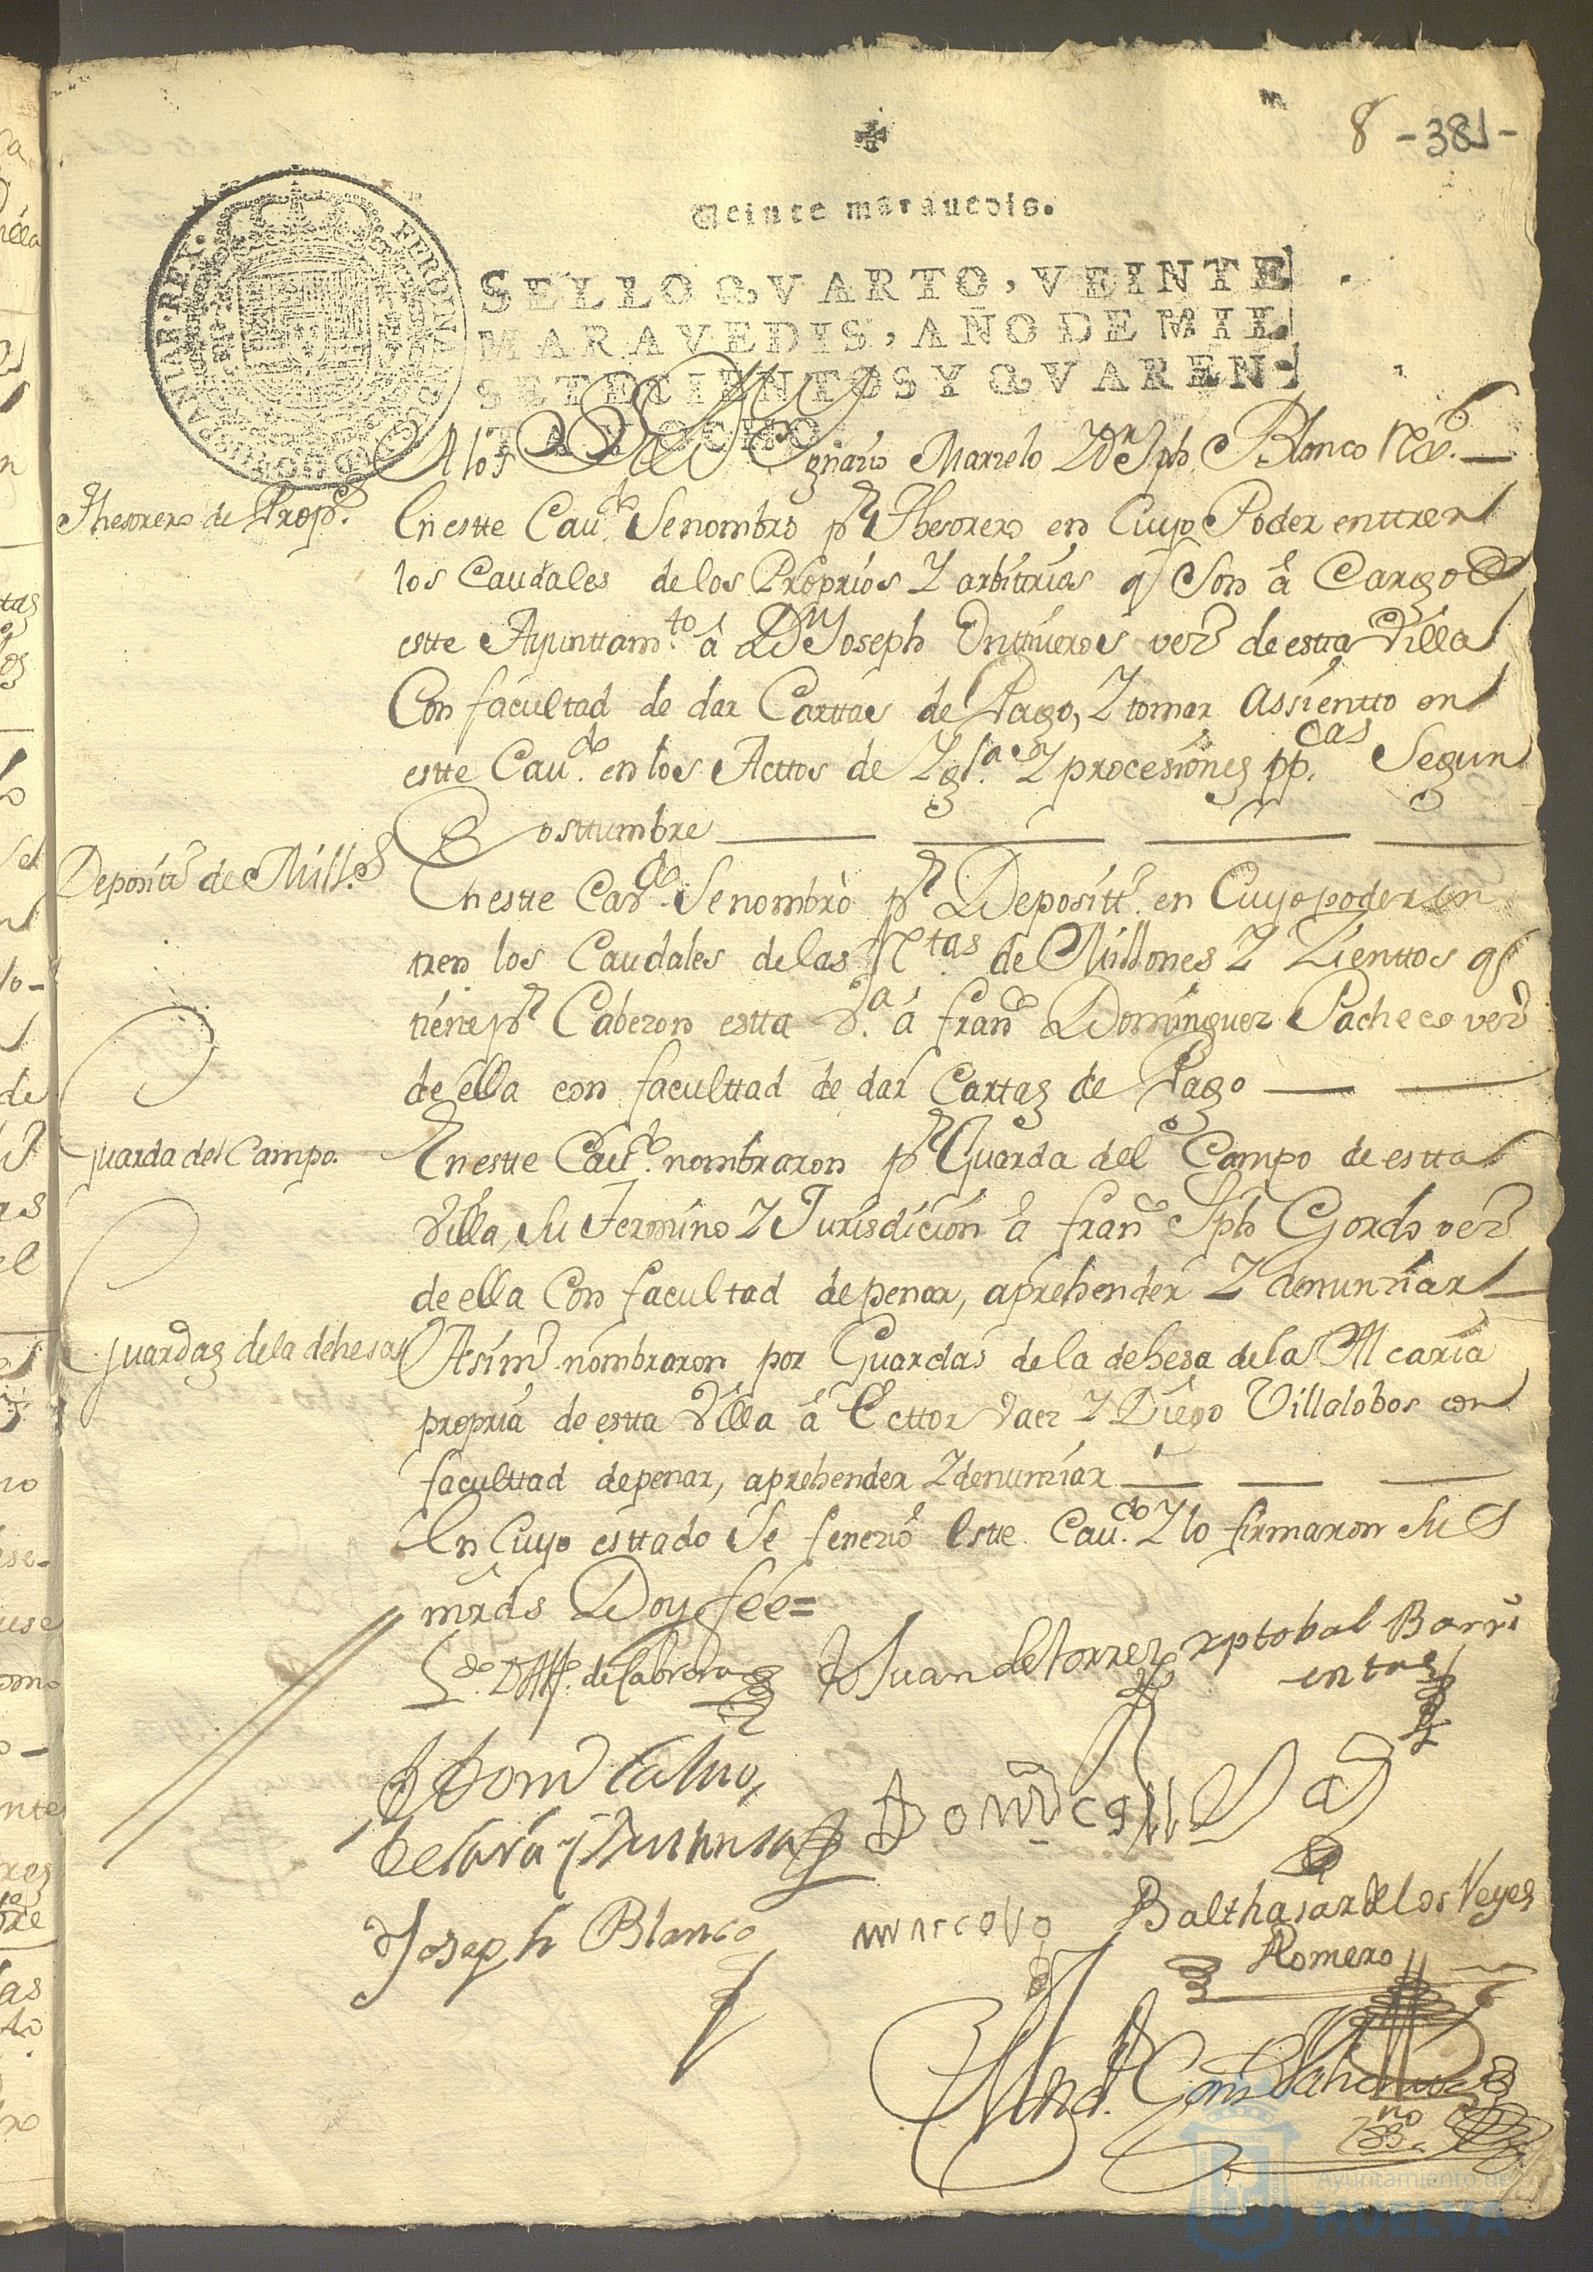 8 -381-
Veinte marauedis.
SELLO QVARTO, VEINTE
MARAVEDIS, AÑO DE MIL
SETECIENTOS Y QVAREN-
TA Y OCHO.
A los Ygnazio Marzelo Y Dn Jph Blanco Rexes
Thesorero de Props
En estte Caudo Se nombrò pr Thesorero en Cuyo Poder enttren
los Caudales de los Proprios Y arbitrias q Son â Cargo de
estte Ayunttamto â Dn Joseph vezo de estta Villa
Con facultad de dar Carttas de Pago, Y tomar Assientto en
estte Caudo en los Acttos de Ygla Y procesiones ppcas Segun
Costtumbre
Depositto de Mills
En estte Cavdo Se nombrò pr Depositto en Cuyo poder en
tren los Caudales de las Rtas de Millones Y Zienttos q
tiene pr Cabezon estta Va â Franco Dominguez Pacheco vezo
de ella con facultad de dar Cartas de Pago
Guarda del Campo.
En estte Caudo nombraron pr Guarda del Campo de estta
Villa, Su Termino Y Jurisdicion â Franco Jph Gordo vezo
de ella Con facultad de penar, aprehender Y denunziar
Guardas de la dehesa
Asimo nombraron por Guardas de la dehesa de la Alcaria
propria de estta Villa â Ecttor Vaez Y Diego Villalobos con
facultad de penar, aprehender Y denunziar
En Cuyo esttado Se fenezió Estte Caudo Y lo firmaron Sus
mrds Doy fee=
Ldo de Cabrera Juan de torres xptobal Barri
entos
Domo Calvo
Joseph Blanco marcelo Balthasar de los Reyes
Romero
Ayuntamiento de
HUELVA